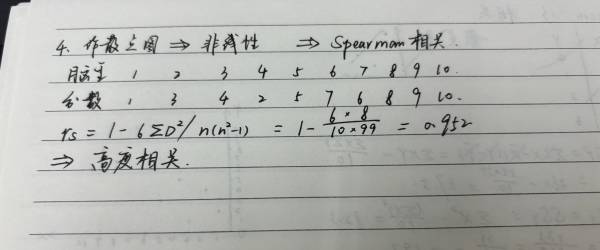 4. 作散点图 ⇒ 非线性 ⇒ Spearman 相关.
脑重 1 2 3 4 5 6 7 8 9 10.
分数 1 3 4 2 5 7 6 8 9 10.
rs = 1 - 6ΣD²/n(n²-1) = 1 - 6×8/10×99 = 0.952
⇒ 高度相关.